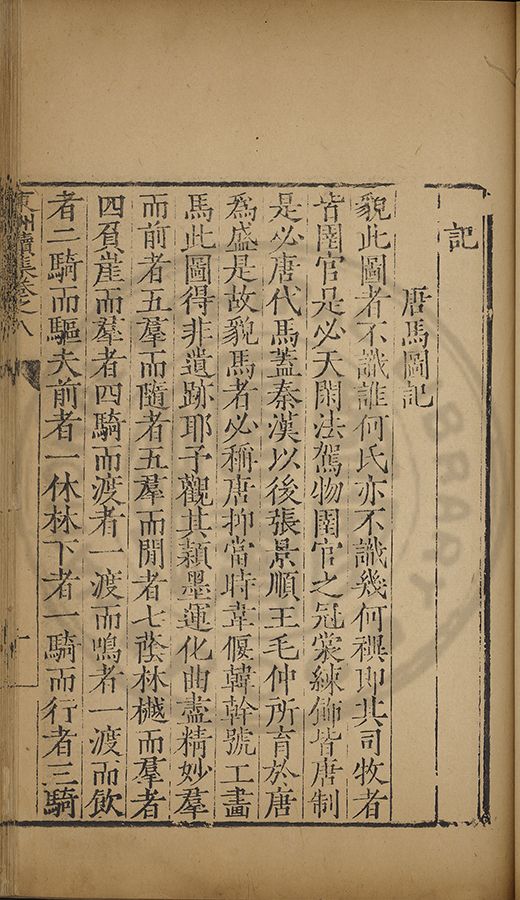 記
唐馬圖記
貌此圖者不識誰何氏亦不識幾何禩即其司牧者
皆圉官是必天閑法駕物圉官之冠裳練飾皆唐制
是必唐代馬蓋秦漢以後張景順王毛仲所育於唐
爲盛是故貌馬者必稱唐抑當時韋偃韓幹號工畫
馬此圖得非遺跡耶予觀其穎墨運化曲盡精妙羣
而前者五羣而隨者五羣而閒者七蔭林樾而羣者
四負崖而羣者四騎而渡者一渡而鳴者一渡而飲
者二騎而驅夫前者一休林下者一騎而行者三騎
續集卷之八
一